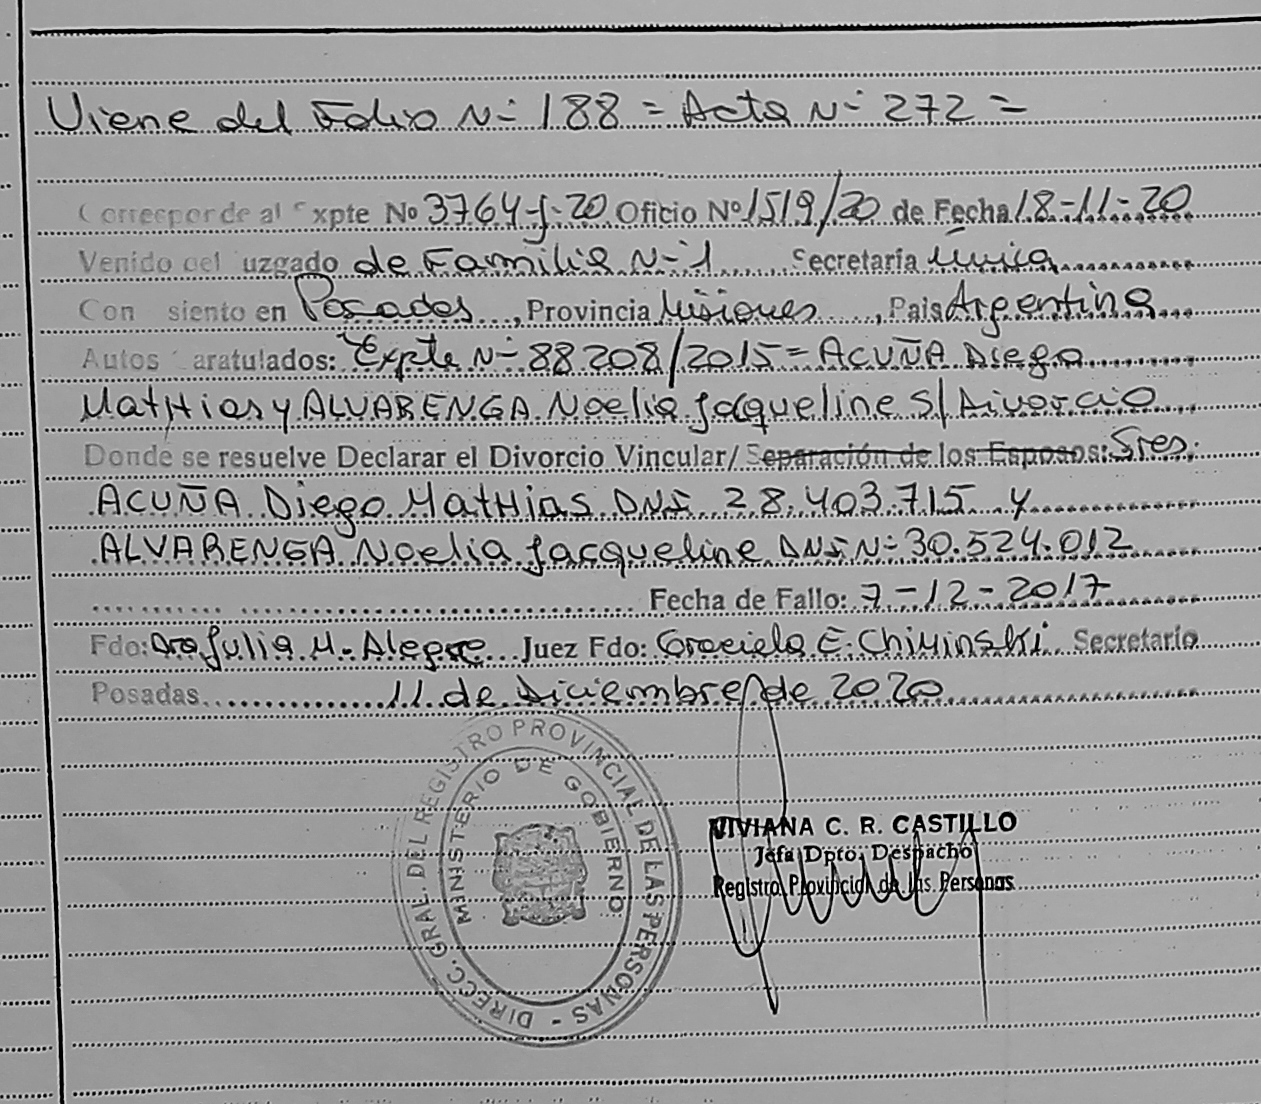 Viene del Folio N° 188 = Acta N° 272 =
Corresponde al Expte No 3764-J-20 Oficio Nº 1519/20 de Fecha 18-11-20
Venido del Juzgado de Familia N° 1 Secretaría única
Con siento en Posadas, Provincia Misiones, Pais Argentina
Autos Caratulados: Expte N° 88208/2015 = ACUÑA Diego
MatHias y ALVARENGA Noelia Jacqueline S/ Divorcio
Donde se resuelve Declarar el Divorcio Vincular/ Separación de los Esposos: Sres.
ACUÑA Diego MatHias DNI 28.403.715 y
ALVARENGA Noelia Jacqueline DNI N° 30.524.012
Fecha de Fallo: 7-12-2017
Fdo: Dra Julia M. Alegre Juez Fdo: Graciela E. Chiminski Secretario
Posadas 11 de Diciembre de 2020
DIRECC. GRAL. DEL REGISTRO PROVINCIAL DE LAS PERSONAS -
MINISTERIO DE GOBIERNO
VIVIANA C. R. CASTILLO
Jefa Dpto. Despacho
Registro Provincial de las Personas